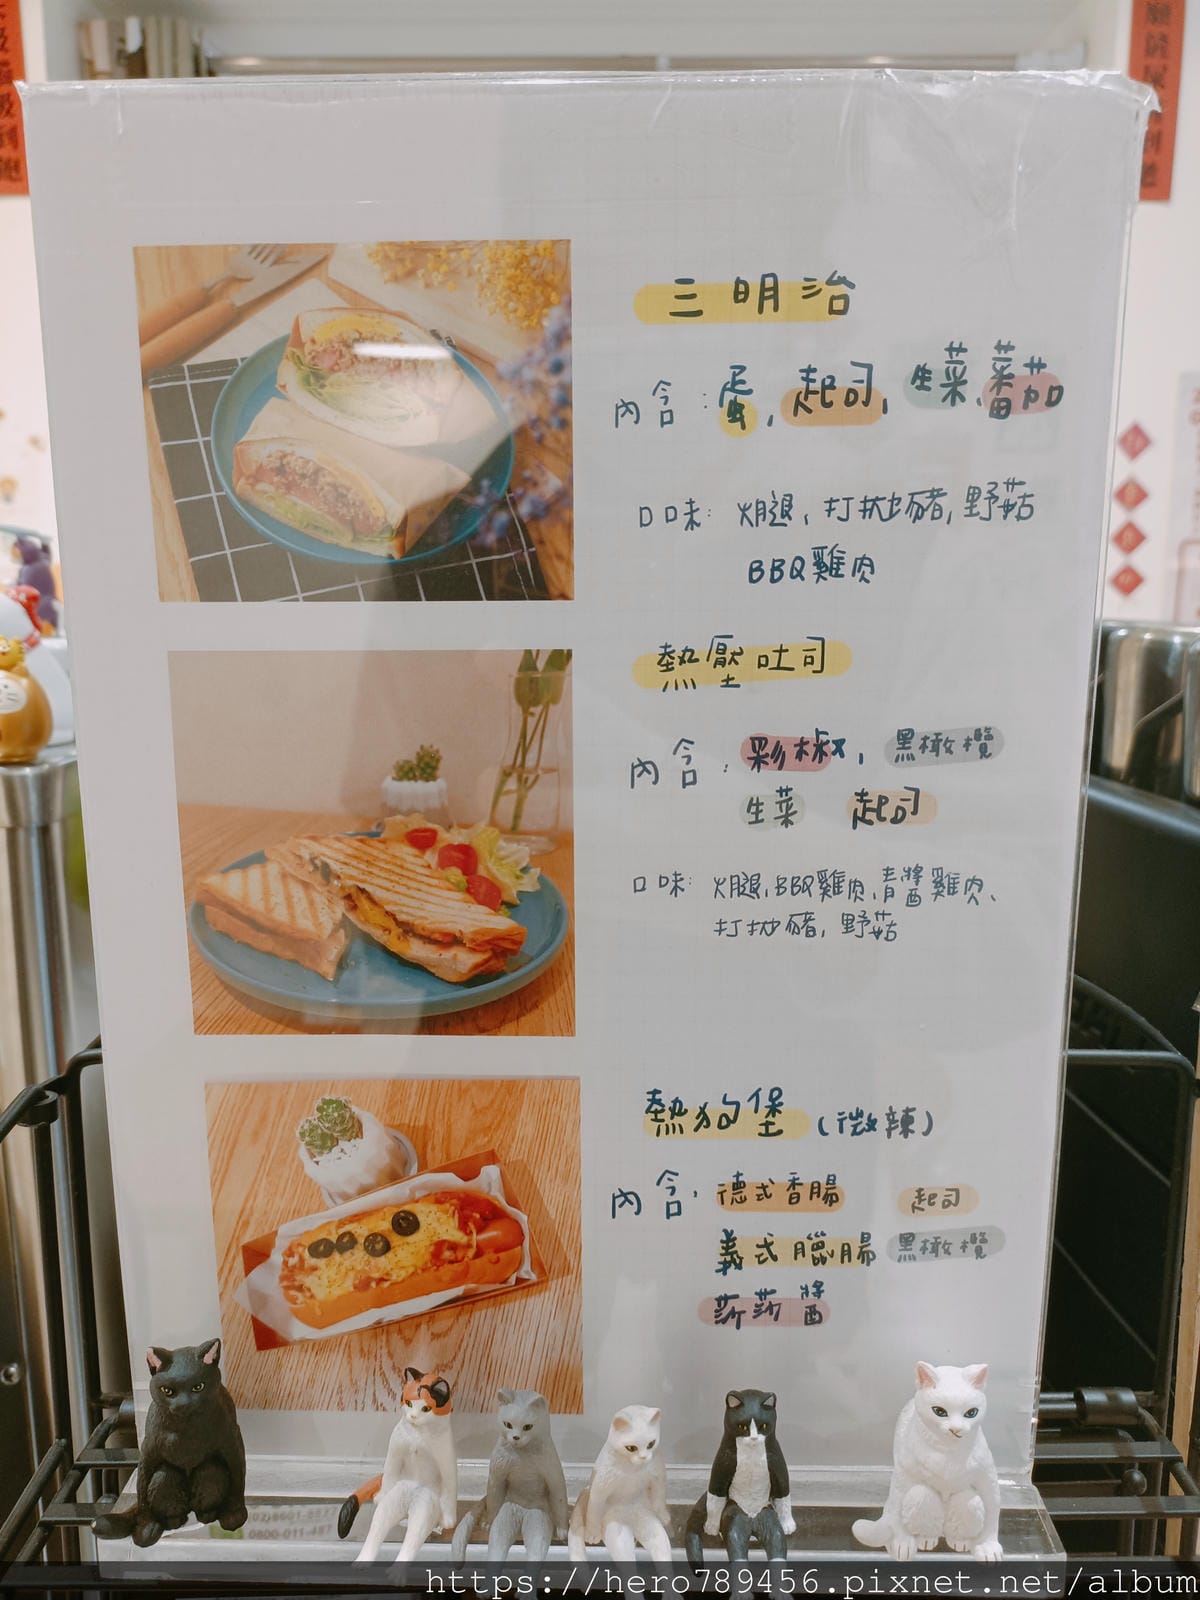 三明治
內含:蛋,起司,生菜、蕃茄
口味:火腿,打拋豬,野菇
BBQ雞肉
熱壓吐司
內含:彩椒,黑橄欖
生菜 起司
口味:火腿,BBQ雞肉,青醬雞肉、
打拋豬,野菇
熱狗堡(微辣)
內含,德式香腸 起司
義式臘腸 黑橄欖
莎莎醬
0800-011-487
https://hero789456.pixnet.net/album